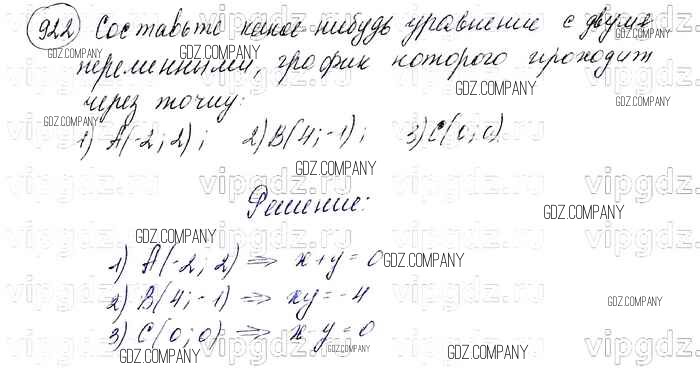 922 Составьте какое-нибудь уравнение с двумя
переменными, график которого проходит
через точку:
1) A(-2; 2); 2) B(4; -1); 3) C(0; 0)
Решение:
1) A(-2; 2) => x+y=0
2) B(4; -1) => xy=-4
3) C(0; 0) => x-y=0
GDZ.COMPANY
vipgdz.ru